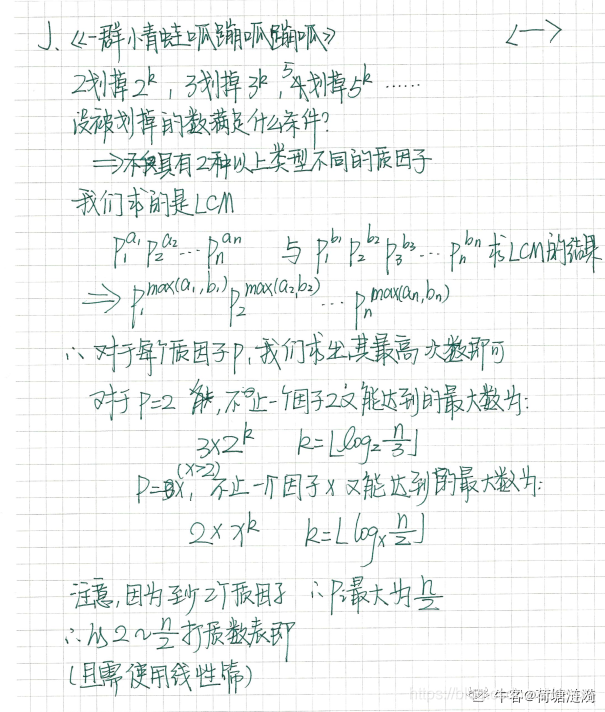 J、《一群小青蛙呱蹦呱蹦呱》 <一>
2划掉2^k, 3划掉3^k, 5划掉5^k ……
没被划掉的数满足什么条件?
⇒具有2种以上类型不同的质因子
我们求的是LCM
p₁^a₁ p₂^a₂ … pₙ^aₙ 与 p₁^b₁ p₂^b₂ p₃^b₃ … pₙ^bₙ 求LCM的结果
⇒ p₁^max(a₁,b₁) p₂^max(a₂,b₂) … pₙ^max(aₙ,bₙ)
∴ 对于每个质因子p, 我们求出其最高次数即可
对于p=2, 不止一个因子2又能达到的最大数为:
3×2^k k=⌊log₂ n/3⌋
p=x(x>2), 不止一个因子x又能达到的最大数为:
2×x^k k=⌊logₓ n/2⌋
注意, 因为至少2个质因子 ∴pᵢ最大为n/2
∴从2~n/2打质数表即
(且需使用线性筛)
牛客@荷塘涟漪